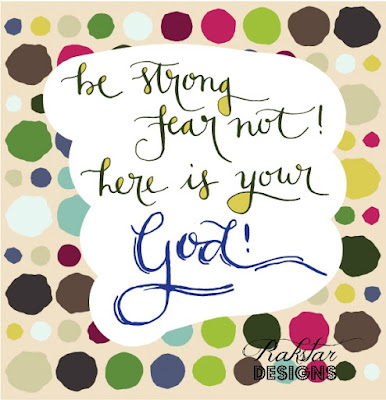 be strong
fear not!
here is your
God!
Rakstar
DESIGNS